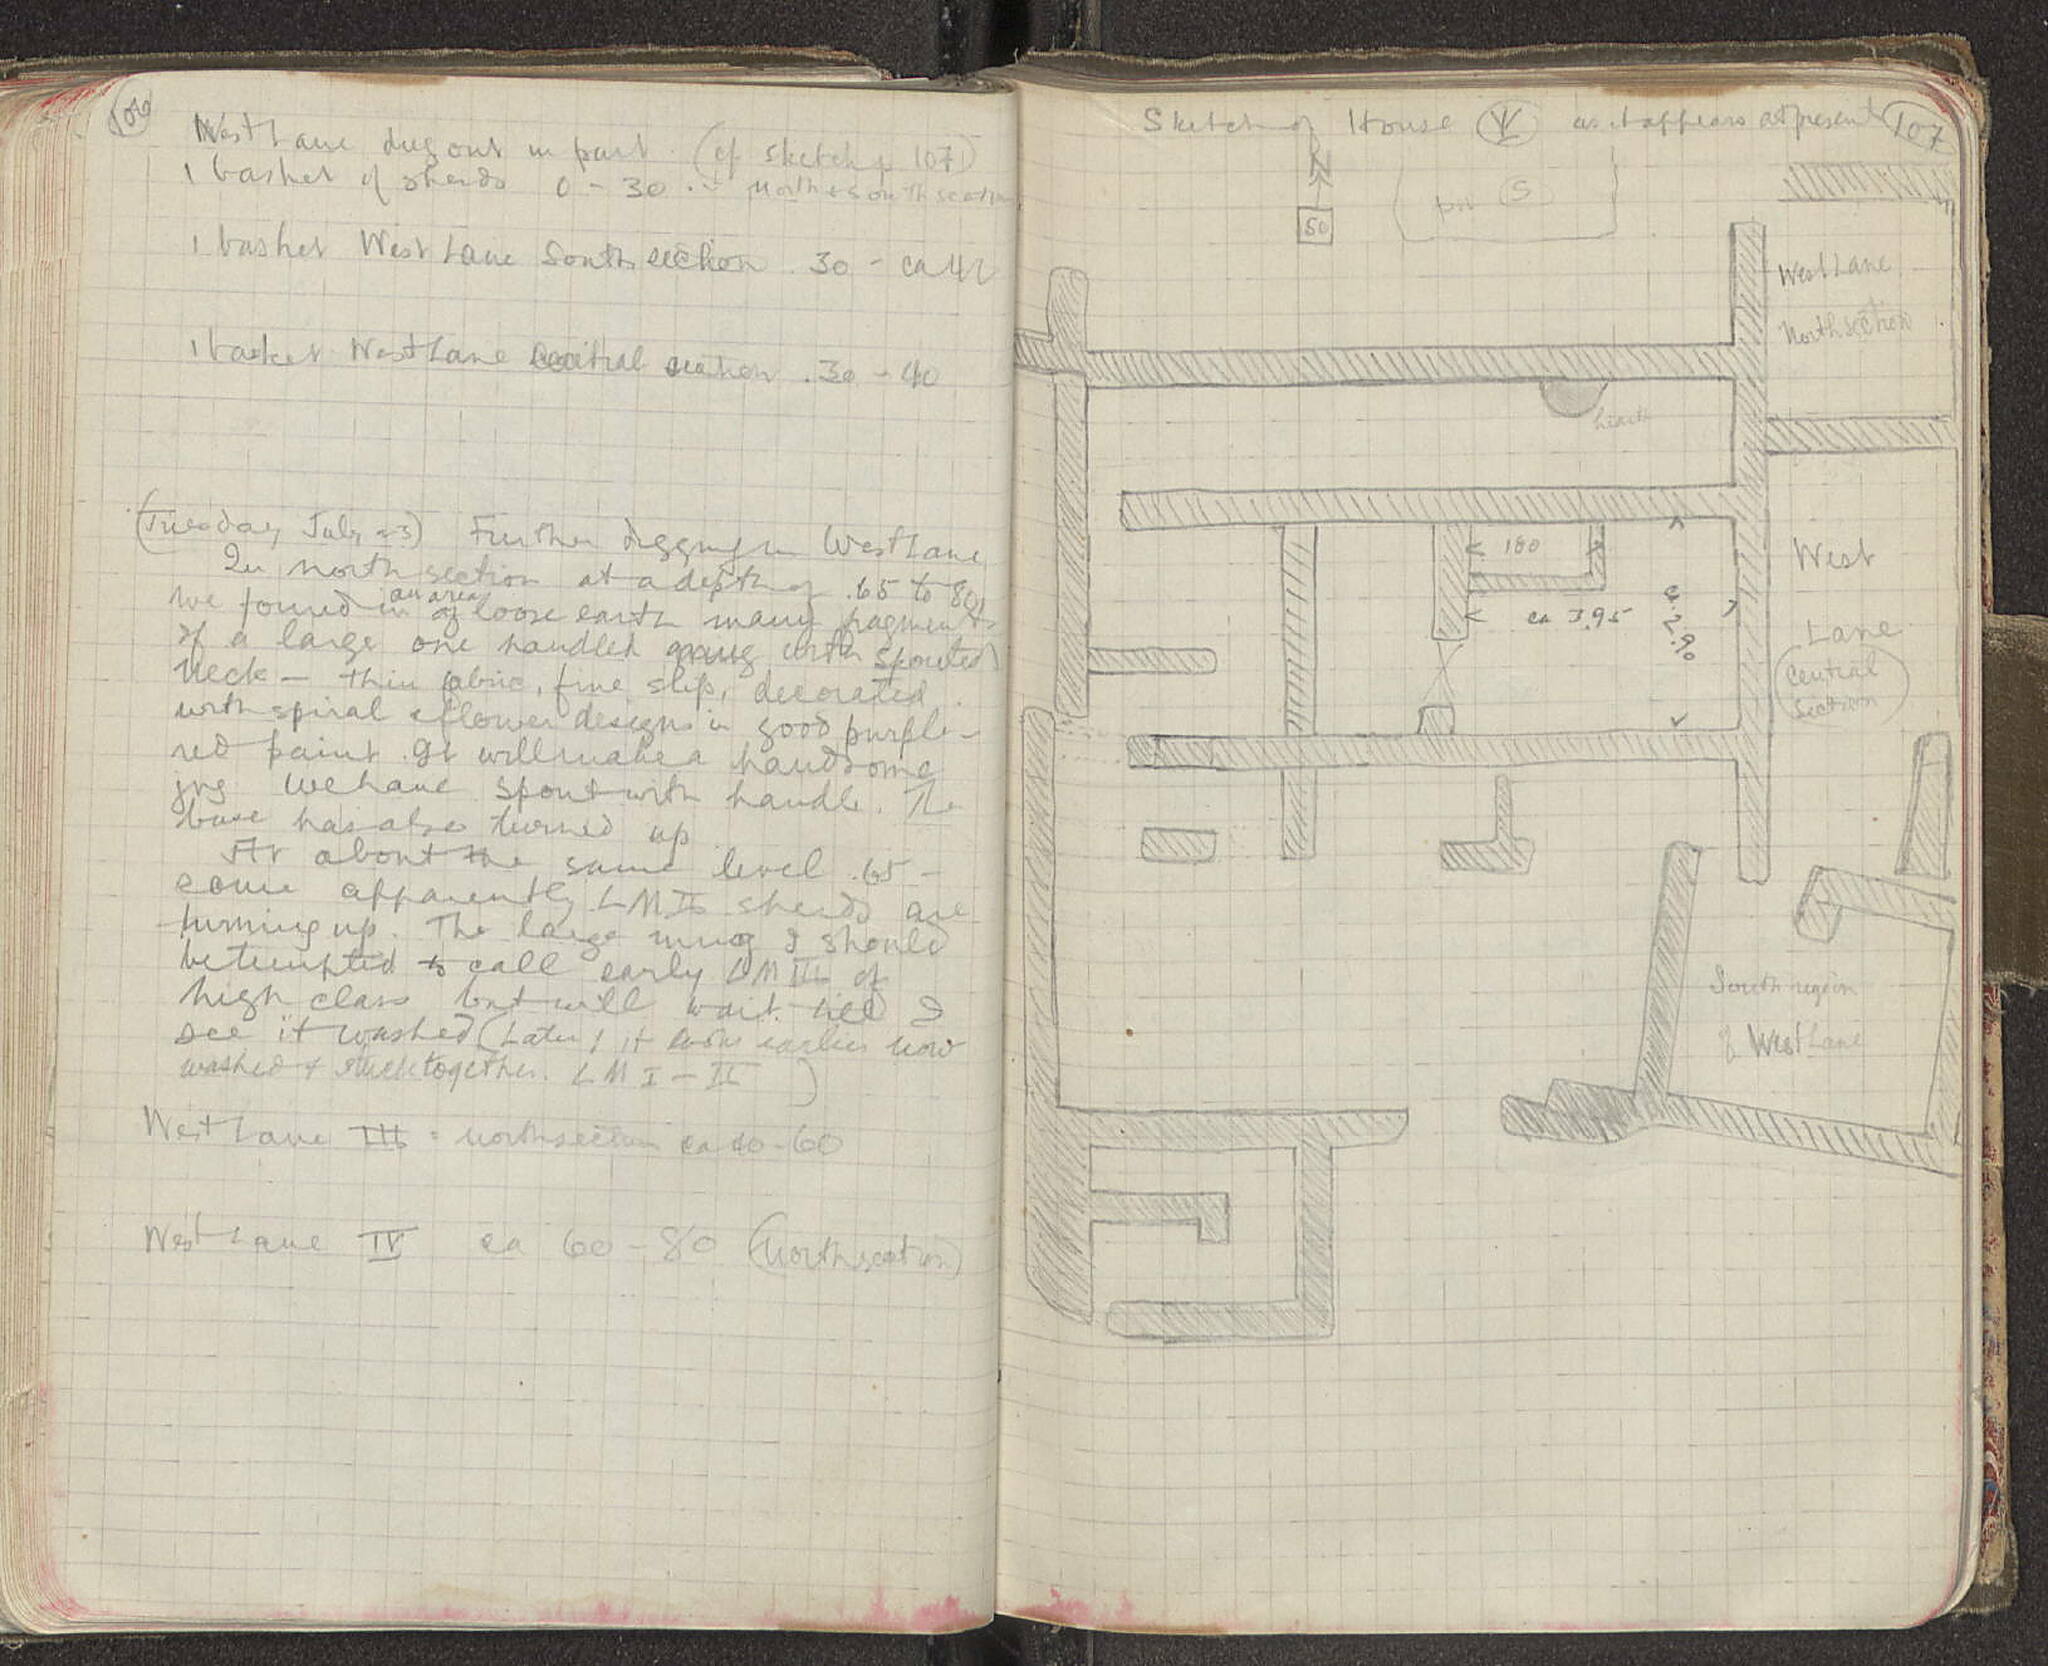 106
West Lane dug out in part. (cf sketch p 107)
1 basket of sherds 0 - 30 . - North & South section
1 basket West Lane South section .30 - ca 42
1 basket West Lane Central section .30 - 40
(Tuesday, July 23) Further digging in West Lane
In north section at a depth of .65 to 80
we found in an area of loose earth many fragments
of a large one handled mug with spouted
neck — thin fabric, fine slip, decorated
with spiral & flower designs in good purple-
red paint. It will make a handsome
jug We have spout with handle. The
base has also turned up
At about the same level .65 -
some apparently LM II sherds are
turning up. The large mug I should
be tempted to call early LM III of
high class but will wait till I
see it washed (Later, it looks earlier now
washed & stuck together. LM I - II )
West Lane III = north section ca 40-60
West Lane IV ca 60 - 80 (North section)
Sketch of House Ψ as it appears at present
107
N
50
pit S
West Lane
North section
hearth
180
ca 3.95
ca 2.90
West
Lane
(Central
Section)
South region
of West Lane